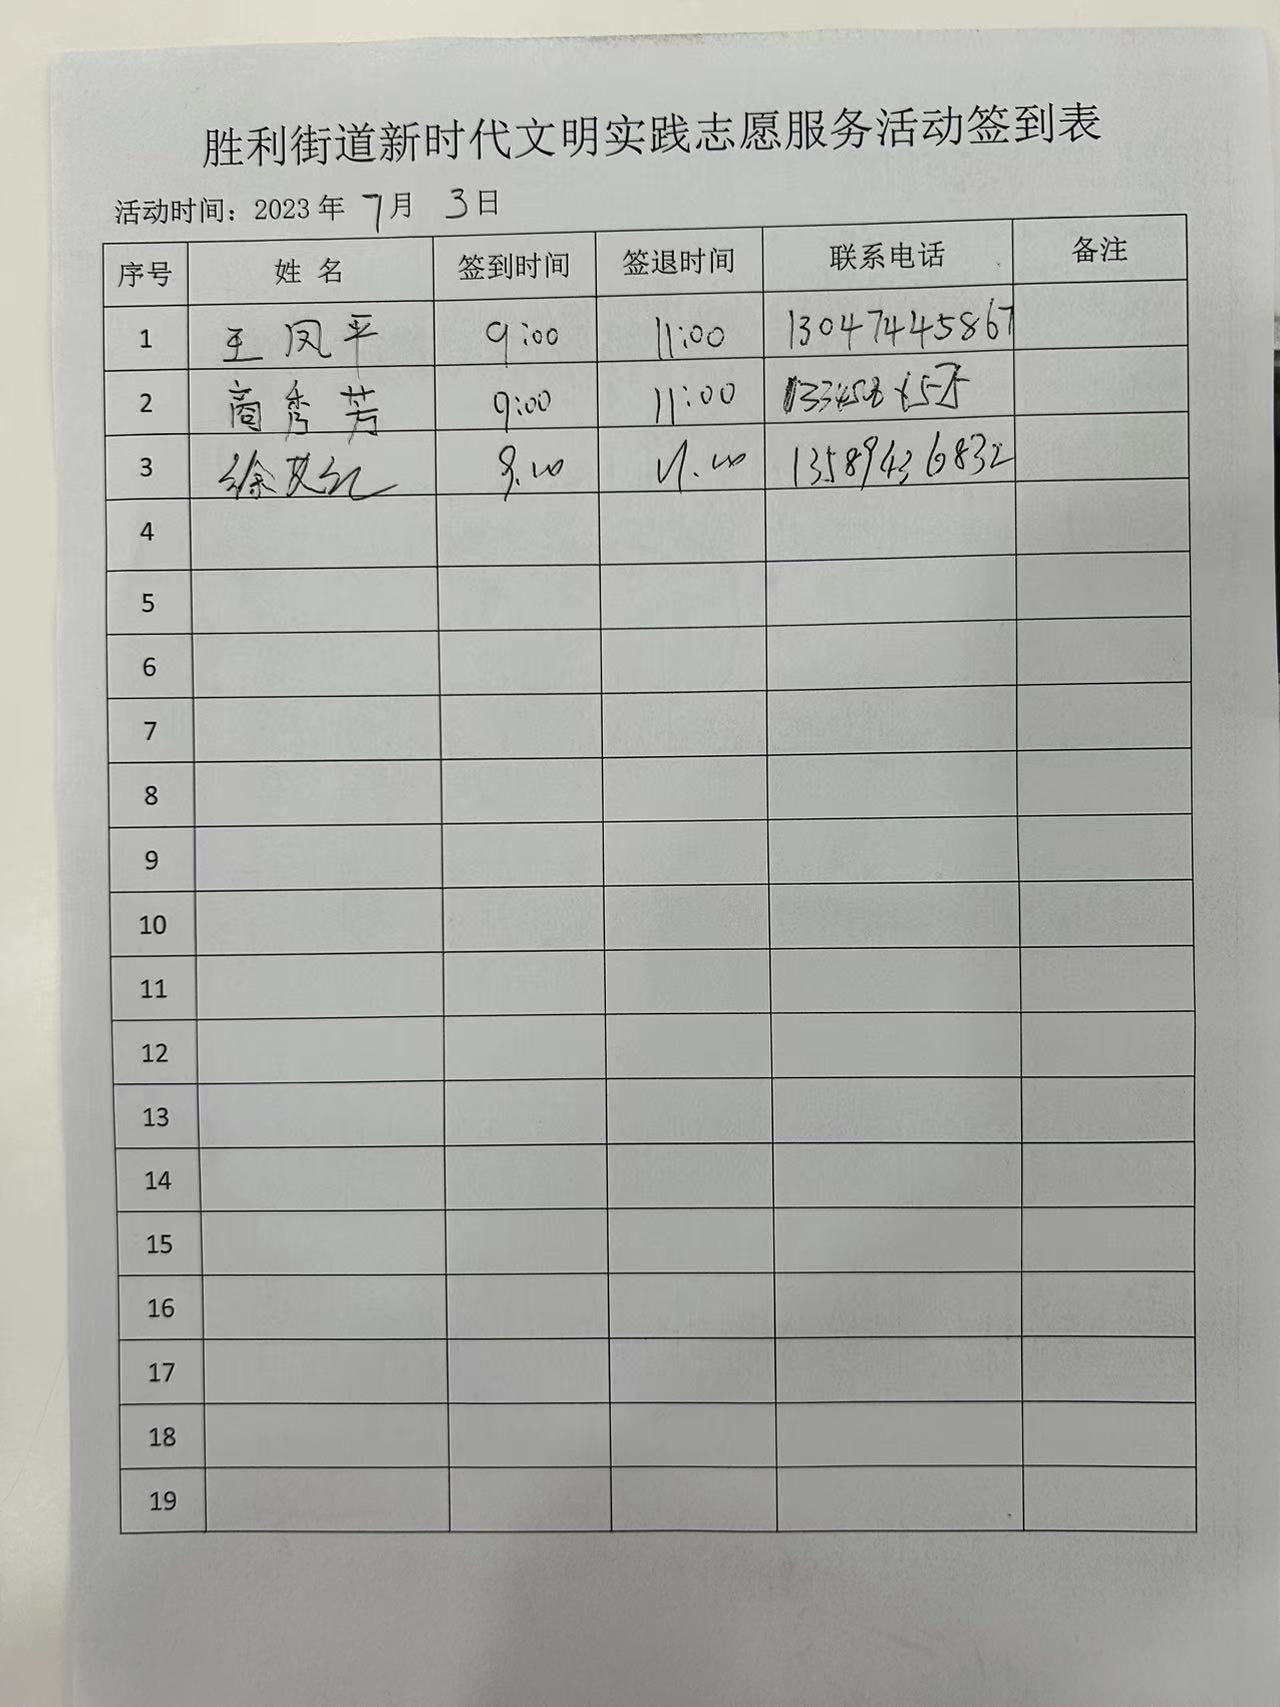 胜利街道新时代文明实践志愿服务活动签到表
活动时间：2023 年 7 月 3 日
序号 姓 名 签到时间 签退时间 联系电话 备注
1 王凤平 9:00 11:00 13047445867
2 商秀芳 9:00 11:00
3 徐 9.00 11.00 13589436832
4
5
6
7
8
9
10
11
12
13
14
15
16
17
18
19